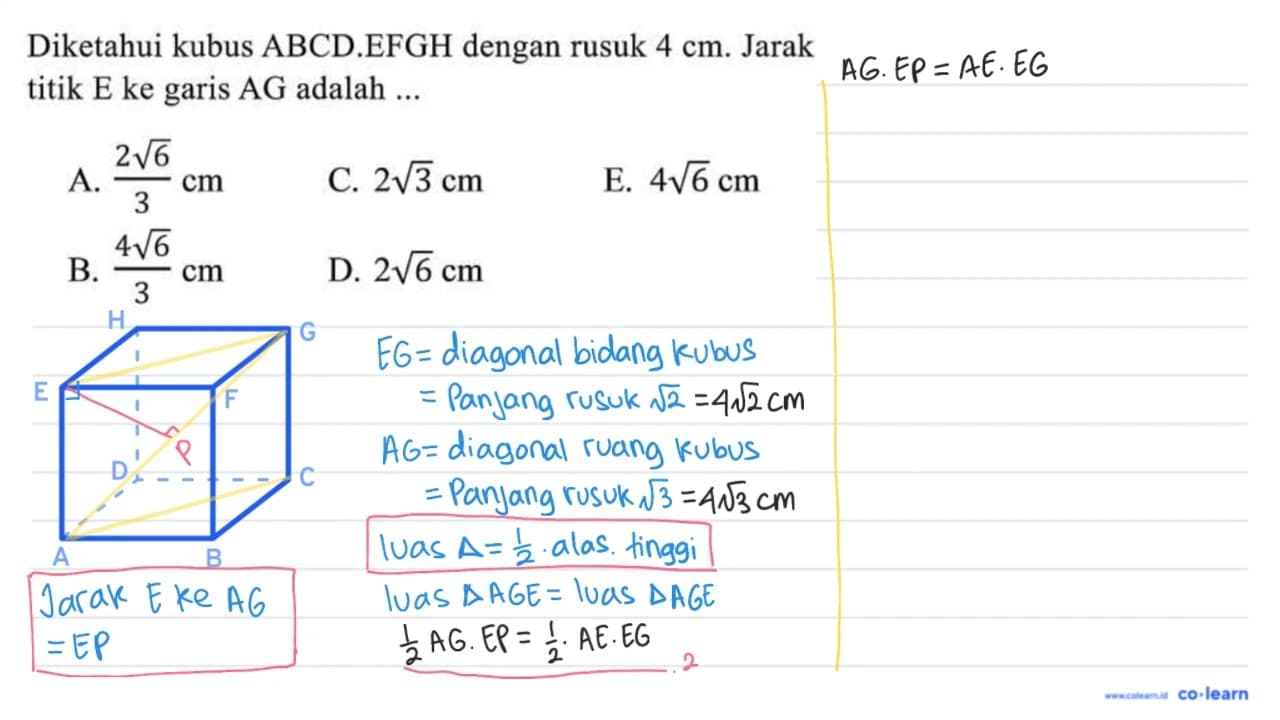 Diketahui kubus ABCD.EFGH dengan rusuk 4 cm. Jarak
titik E ke garis AG adalah ...
A. 2√6/3 cm C. 2√3 cm E. 4√6 cm
B. 4√6/3 cm D. 2√6 cm
H
G
E
F
P
D
C
A
B
Jarak E ke AG
= EP
EG = diagonal bidang kubus
= Panjang rusuk √2 = 4√2 cm
AG = diagonal ruang kubus
= Panjang rusuk √3 = 4√3 cm
luas Δ = 1/2 . alas. tinggi
luas Δ AGE = luas Δ AGE
1/2 AG. EP = 1/2 . AE. EG
. 2
AG. EP = AE. EG
www.colearn.id co·learn